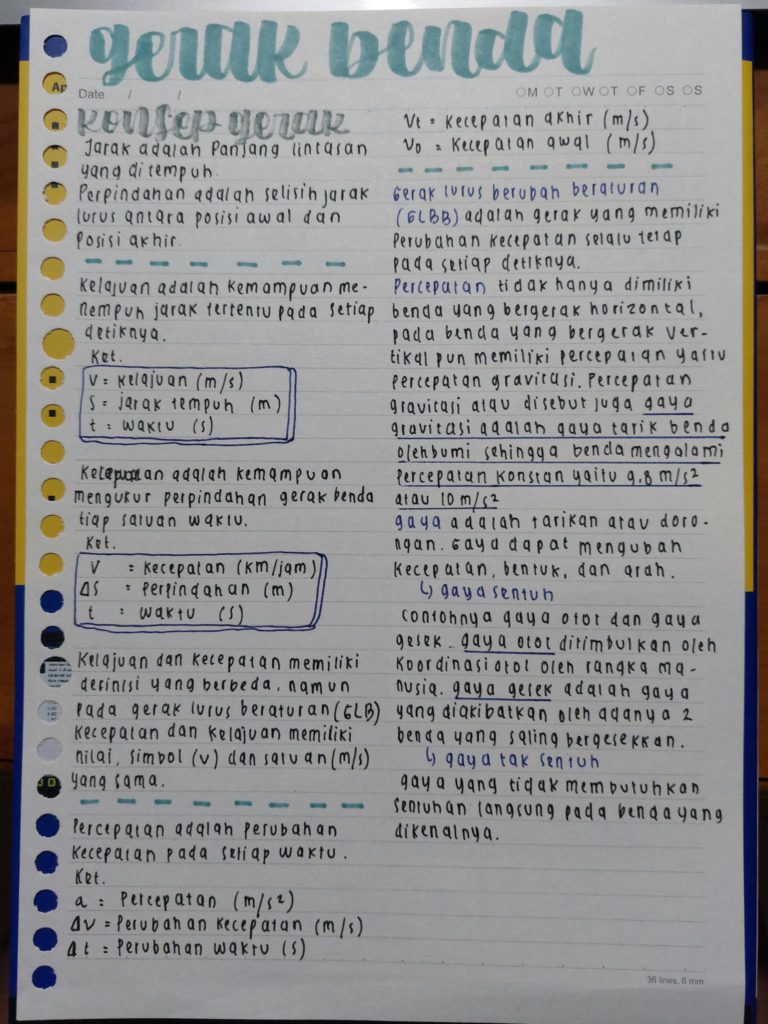 gerak benda
Ap
Date / /
OM OT OW OT OF OS OS
konsep gerak
Jarak adalah Panjang lintasan
yang ditempuh.
Perpindahan adalah selisih jarak
lurus antara posisi awal dan
Posisi akhir.
Kelajuan adalah kemampuan me-
nempuh jarak tertentu pada setiap
detiknya.
Ket.
V = Kelajuan (m/s)
S = jarak tempuh (m)
t = waktu (s)
Kecepatan adalah kemampuan
mengukur perpindahan gerak benda
tiap satuan waktu.
Ket.
V = Kecepatan (km/jam)
ΔS = Perpindahan (m)
t = waktu (s)
Kelajuan dan kecepatan memiliki
definisi yang berbeda, namun
pada gerak lurus beraturan (GLB)
kecepatan dan kelajuan memiliki
nilai, simbol (v) dan satuan (m/s)
yang sama.
Percepatan adalah perubahan
kecepatan pada setiap waktu.
Ket.
a = Percepatan (m/s²)
Δv = Perubahan kecepatan (m/s)
Δt = Perubahan waktu (s)
Vt = Kecepatan akhir (m/s)
Vo = Kecepatan awal (m/s)
Gerak lurus berubah beraturan
(GLBB) adalah gerak yang memiliki
Perubahan kecepatan selalu tetap
pada setiap detiknya.
Percepatan tidak hanya dimiliki
benda yang bergerak horizontal,
pada benda yang bergerak ver-
tikal pun memiliki percepatan yaitu
percepatan gravitasi. Percepatan
gravitasi atau disebut juga gaya
gravitasi adalah gaya tarik benda
oleh bumi sehingga benda mengalami
Percepatan konstan yaitu 9,8 m/s²
atau 10 m/s²
gaya adalah tarikan atau doro-
ngan. Gaya dapat mengubah
kecepatan, bentuk, dan arah.
↳ gaya sentuh
contohnya gaya otot dan gaya
gesek. gaya otot ditimbulkan oleh
koordinasi otot oleh rangka ma-
nusia. gaya gesek adalah gaya
yang diakibatkan oleh adanya 2
benda yang saling bergesekkan.
↳ gaya tak sentuh
gaya yang tidak membutuhkan
sentuhan langsung pada benda yang
dikenalnya.
36 lines, 6 mm